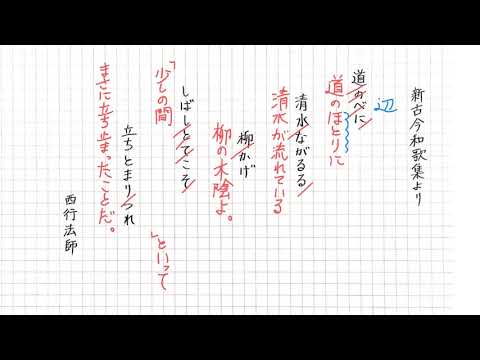 新古今和歌集より
辺
道のべに
道のほとりに
清水ながるる
清水が流れている
柳かげ
柳の木陰よ。
しばしとてこそ
「少しの間」といって
立ちとまりつれ
まさに立ち止まったことだ。
西行法師